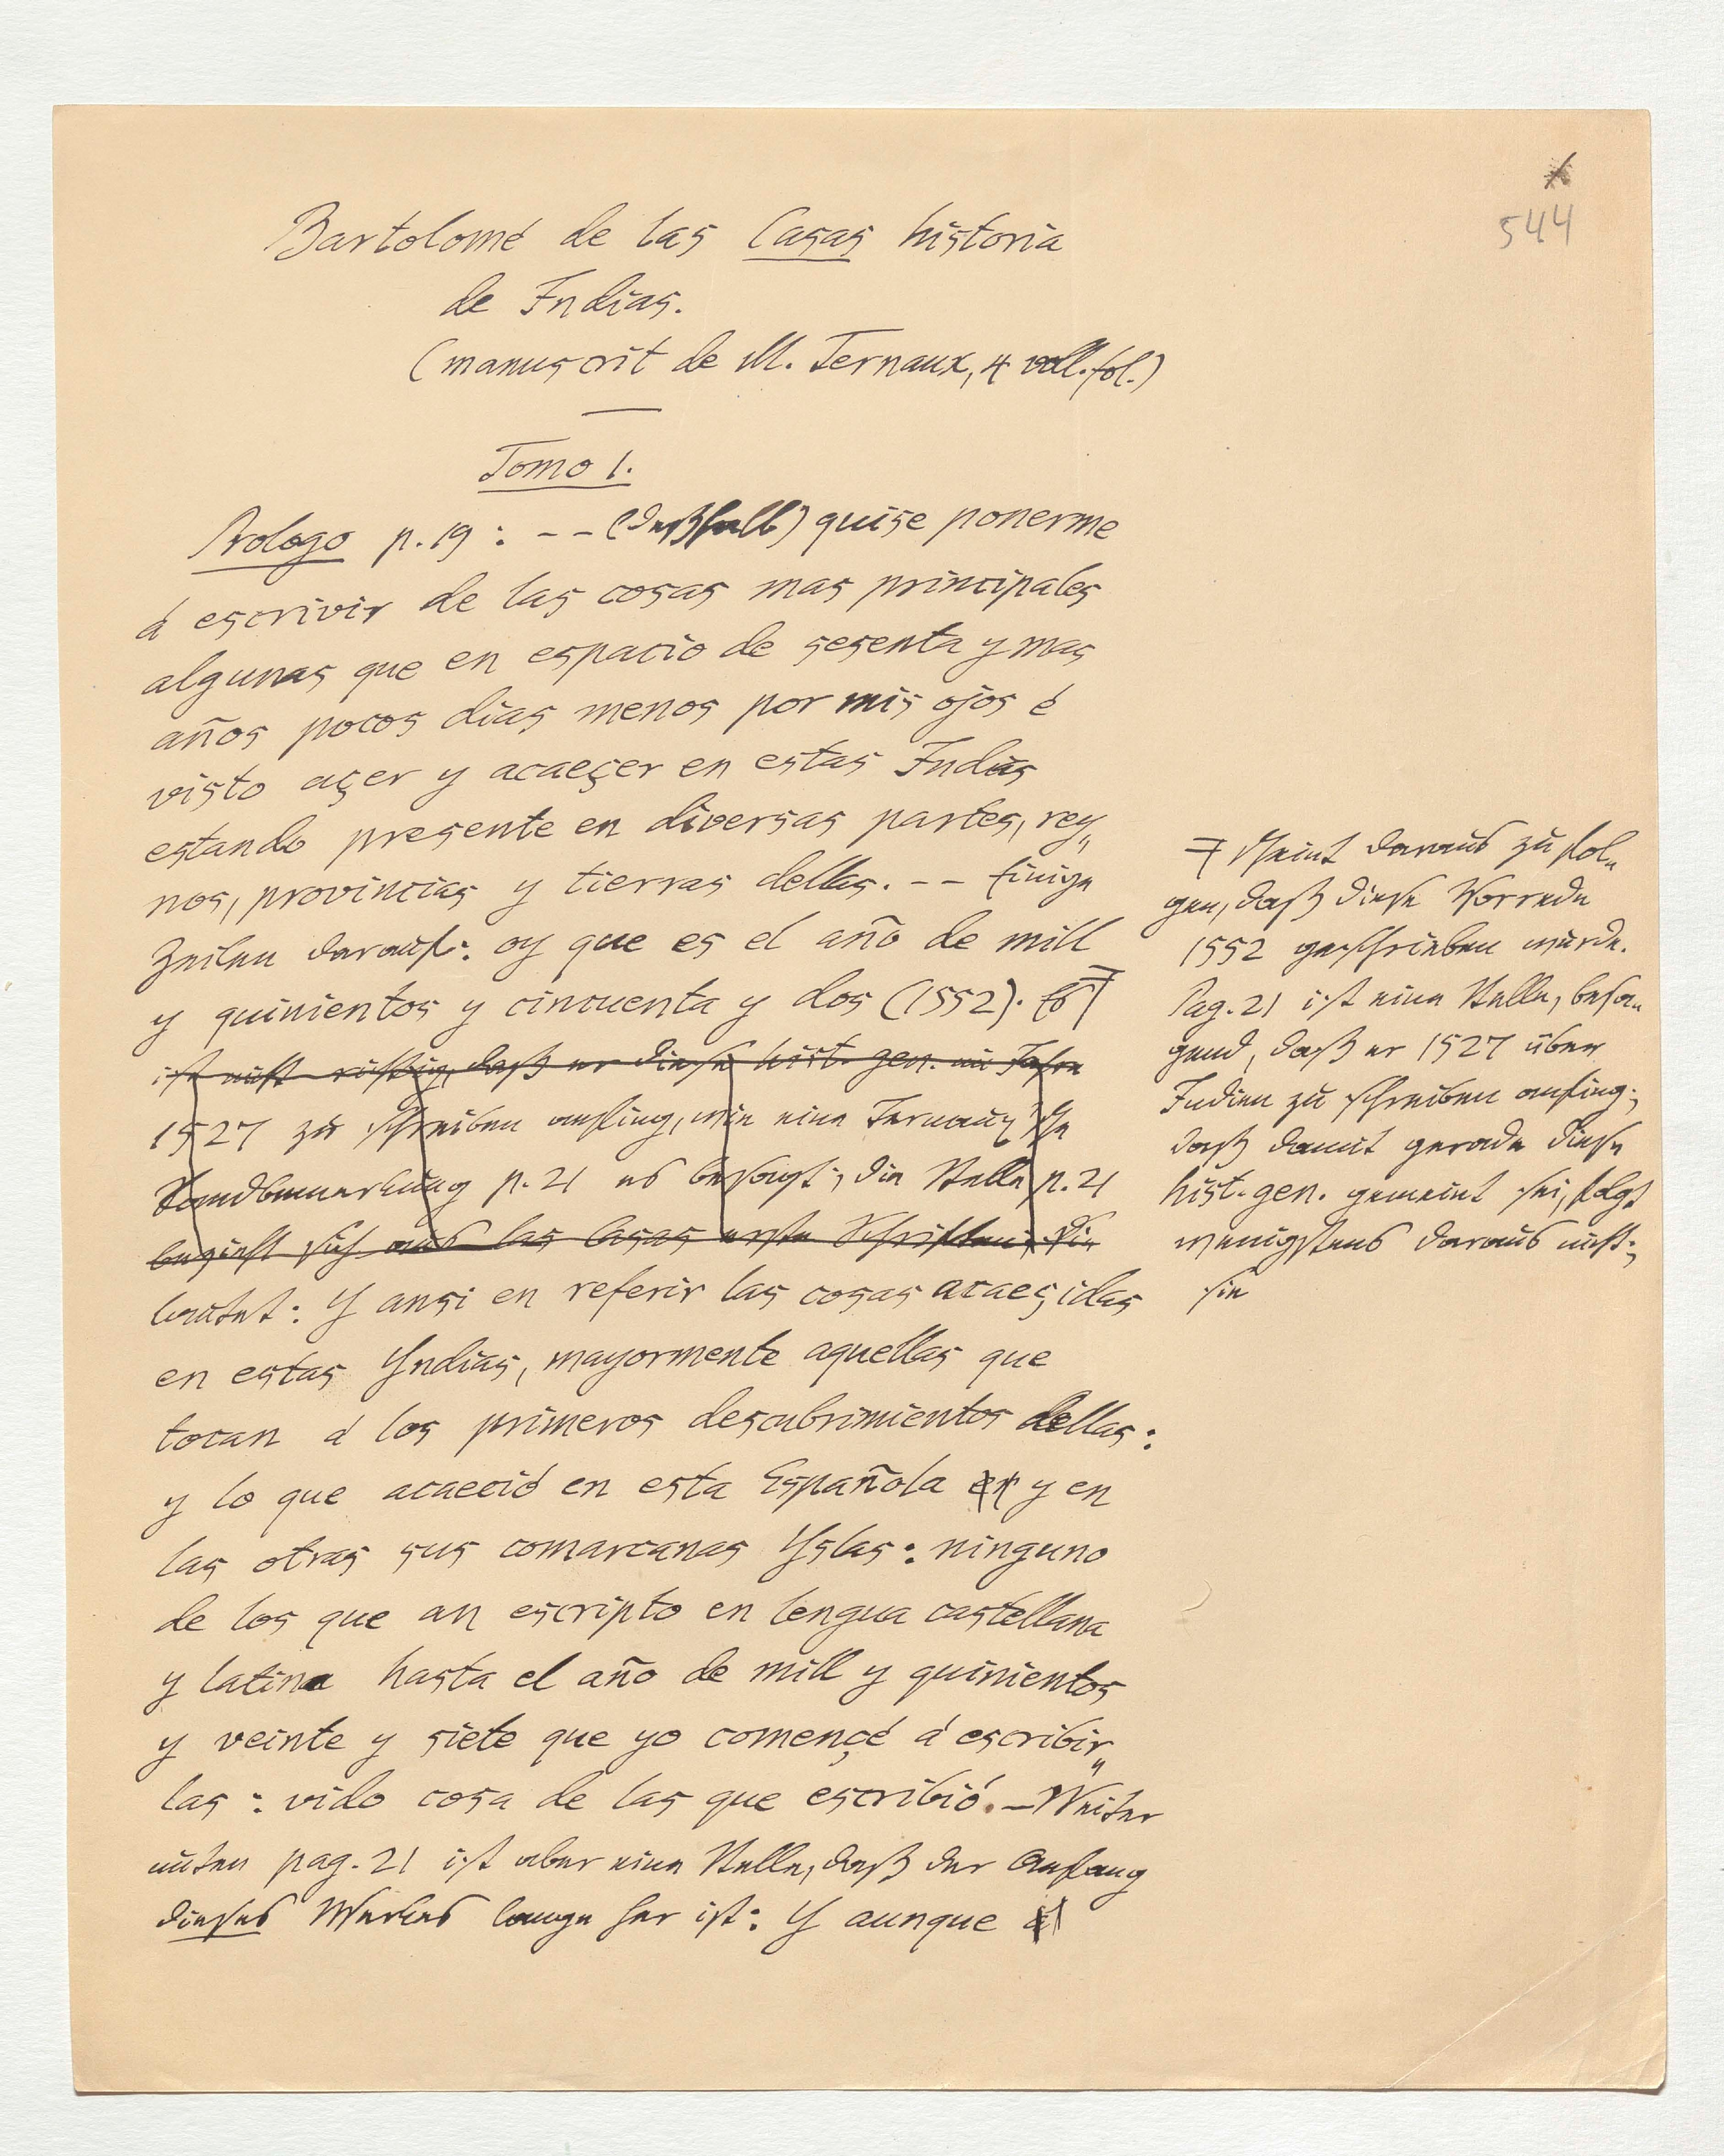 544
Bartolomé de las Casas historia
de Indias.
(manuscrit de M. Ternaux, 4 voll. fol.)
Tomo 1.
Prologo p. 19 : -- (deßhalb) quise ponerme
á escrivir de las cosas mas principales
algunas que en espacio de sesenta y mas
años pocos dias menos por mis ojos é
visto açer y acaeçer en estas Indias
estando presente en diversas partes, rey„
nos, provincias y tierras dellas. -- Einige
Zeilen darauf: oy que es el año de mill
y quinientos y cincuenta y dos (1552). Es
ist nicht richtig, daß er diese hist. gen. im Jahre
1527 zu schreiben anfing, wie eine Ternaux'sche
Randbemerkung p. 21 es besagt; die Stelle p. 21
bezieht sich auf las Casas erste Schriften. Sie
lautet: Y ansi en referir las cosas acaeçidas
en estas Yndias, mayormente aquellas que
tocan á los primeros descubrimientos dellas:
y lo que acaeció en esta Española en y en
las otras sus comarcanas Yslas: ninguno
de los que an escripto en lengua castellana
y latina hasta el año de mill y quinientos
y veinte y siete que yo començé á escribir„
las : vido cosa de las que escribió. - Weiter
unten pag. 21 ist aber eine Stelle, daß der Anfang
dieses Werkes lange her ist: Y aunque
scheint daraus zu fol„
gen, daß diese Vorrede
1552 geschrieben wurde.
Pag. 21 ist eine Stelle, besa„
gend, daß er 1527 über
Indien zu schreiben anfing;
daß damit gerade diese
hist. gen. gemeint sei, folgt
wenigstens daraus nicht;
sie